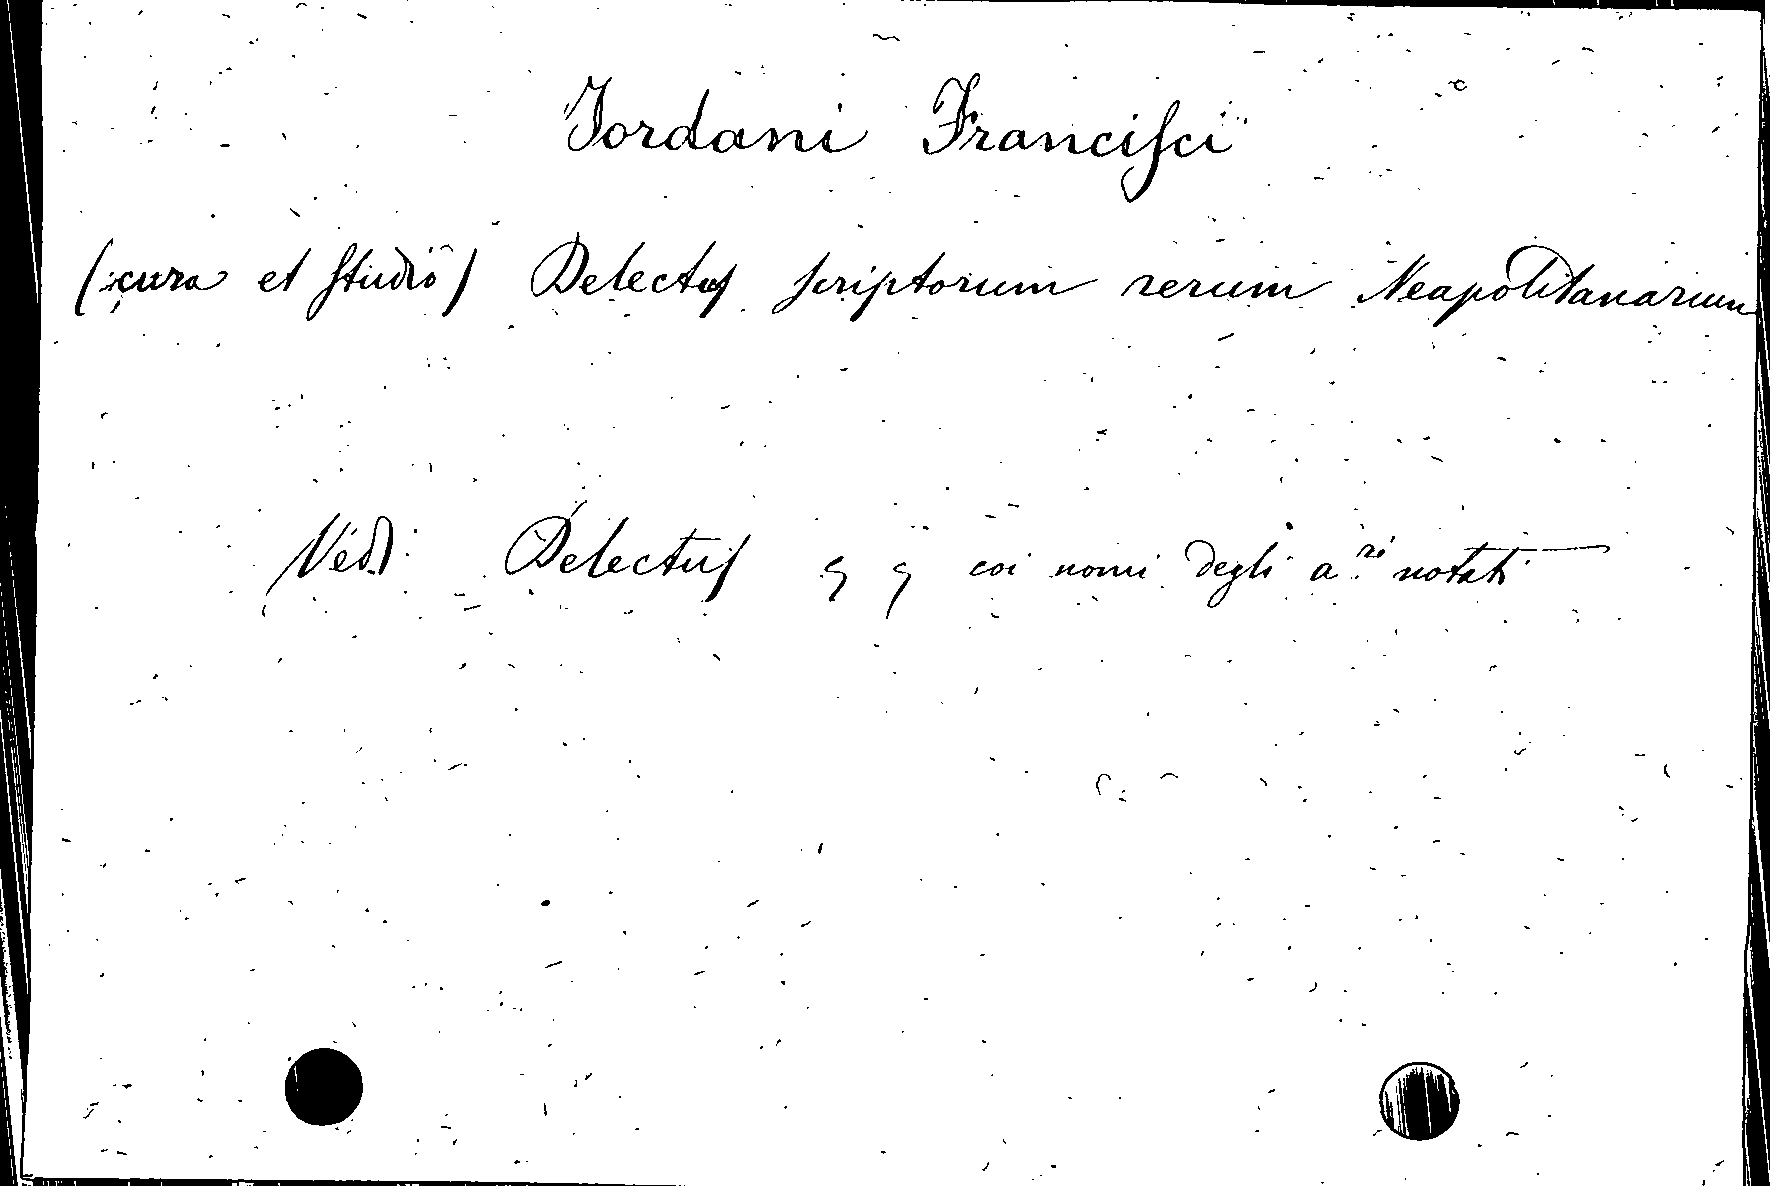 Jordani Francisci
(cura et studio) Delectus scriptorum rerum Neapolitanarum
Vedi Delectus coi nomi degli a.ri notati